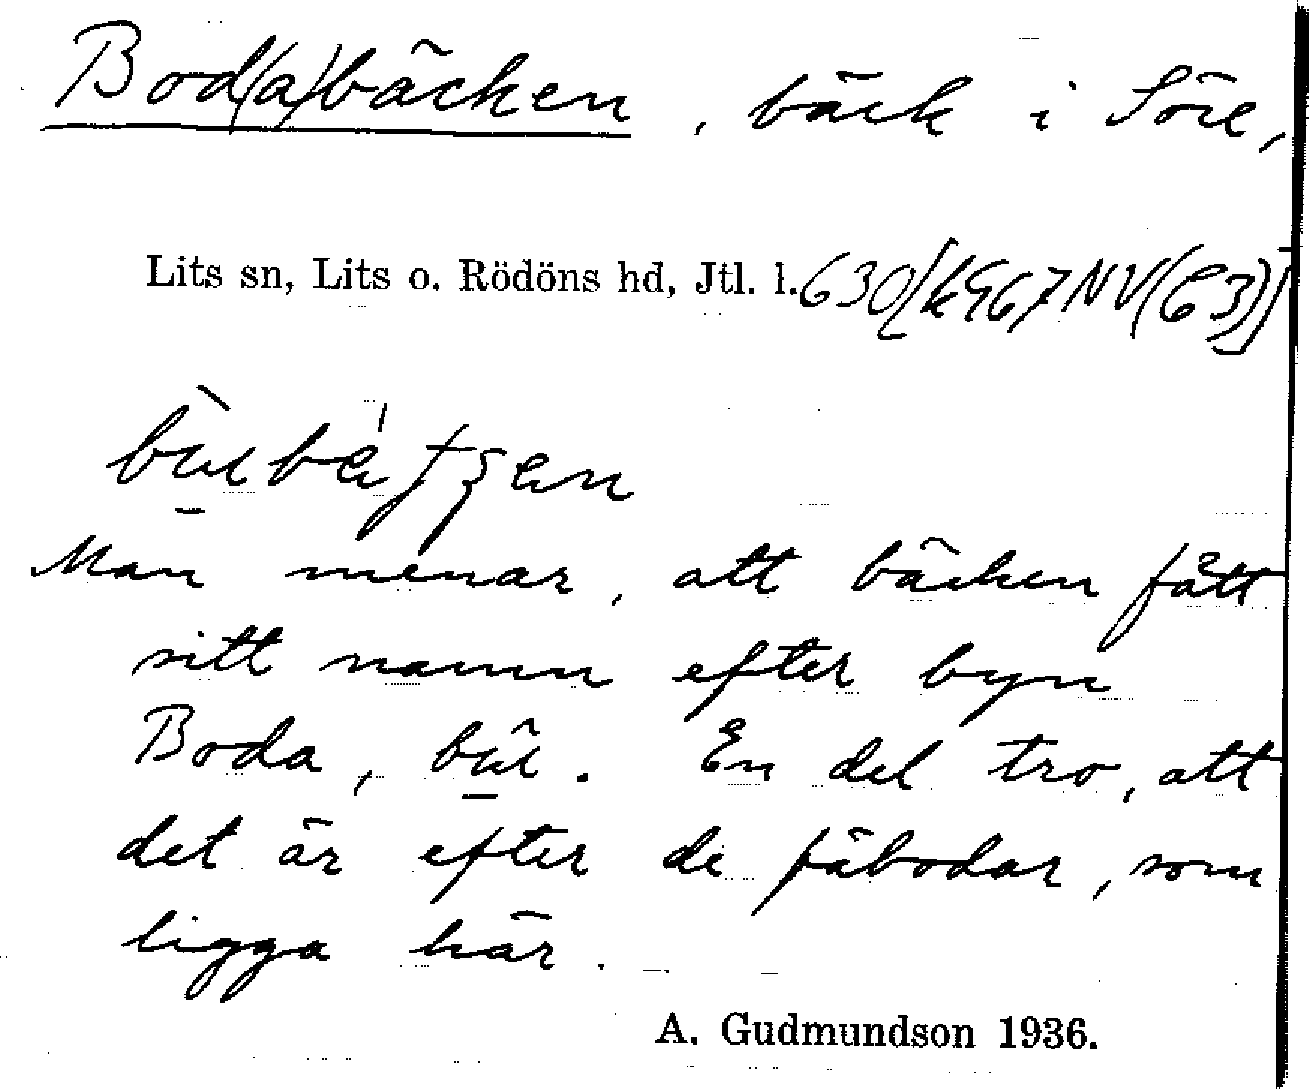 Bod(a)bäcken, bäck i Söre,
Lits sn, Lits o. Rödöns hd, Jtl. l. 630/[k967NV(C3)]
Man menar, att bäcken fått
sitt namn efter byn
Boda, En del tro, att
det är efter de fäbodar, som
ligga här.
A. Gudmundson 1936.